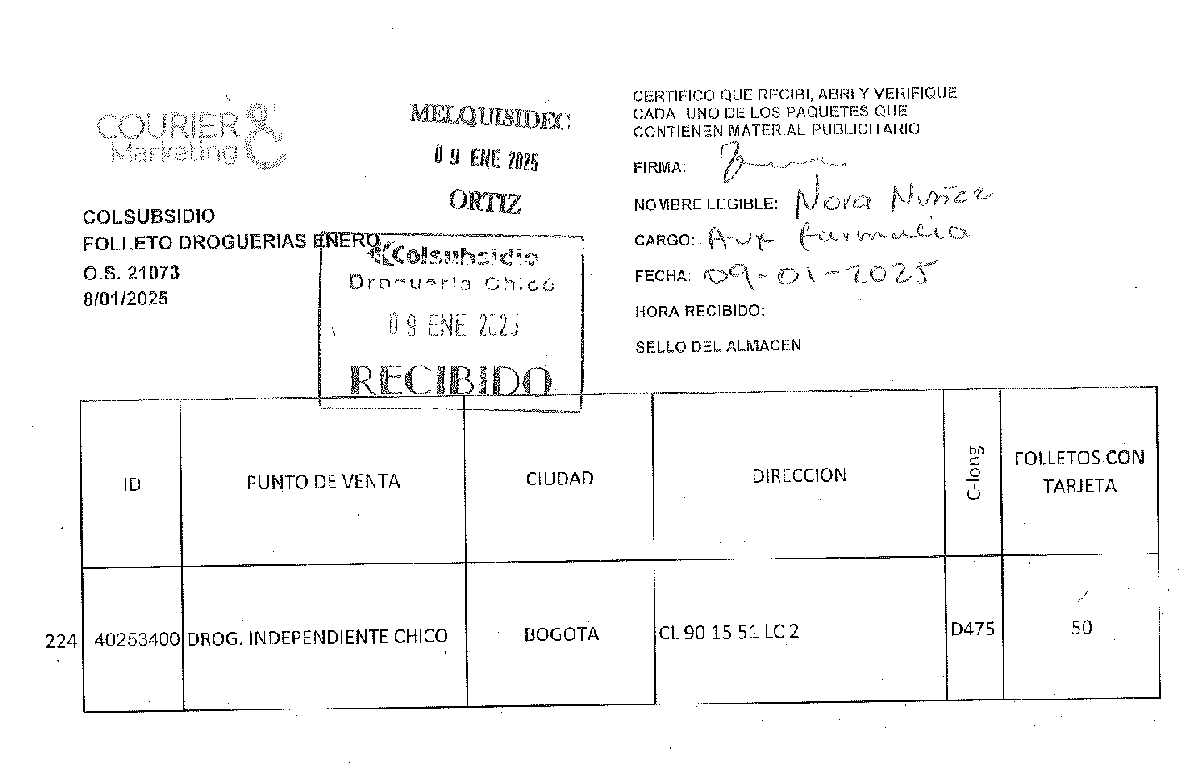 COURIER
Marketing
COLSUBSIDIO
FOLLETO DROGUERIAS ENERO
O.S. 21073
8/01/2025
MELQUISIDEC
09 ENE 2025
ORTIZ
Colsubsidio
Droguería Chicó
09 ENE 2025
RECIBIDO
CERTIFICO QUE RECIBI, ABRI Y VERIFIQUE
CADA UNO DE LOS PAQUETES QUE
CONTIENEN MATERIAL PUBLICITARIO
FIRMA:
NOMBRE LEGIBLE: Nora Nuñez
CARGO: Aux farmacia
FECHA: 09-01-2025
HORA RECIBIDO:
SELLO DEL ALMACEN
ID PUNTO DE VENTA CIUDAD DIRECCION C-long FOLLETOS CON
TARJETA
224 40253400 DROG. INDEPENDIENTE CHICO BOGOTA CL 90 15 51 LC 2 D475 50